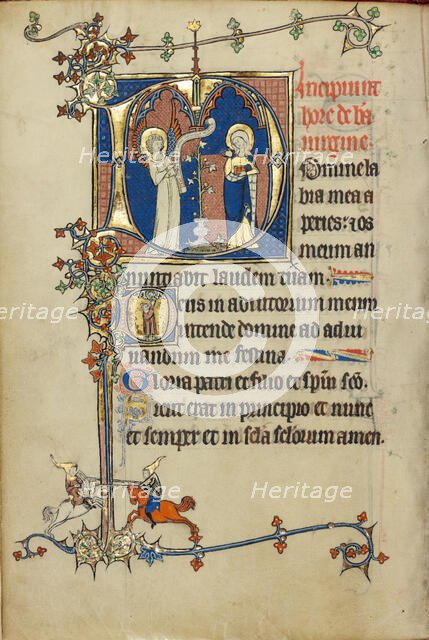 Incipiunt
hore de bea
uirgine.
Domine la
bia mea a
peries: ⁊ os
meum an
nuntiabit laudem tuam.
Deus in adiutorium meum
intende domine ad adiu
uandum me festina.
Gloria patri et filio et spiri sco.
Sicut erat in principio et nunc
et semper et in scla sclorum amen.
Heritage
Heritage
Heritage
Heritage
Heritage
Heritage
Heritage